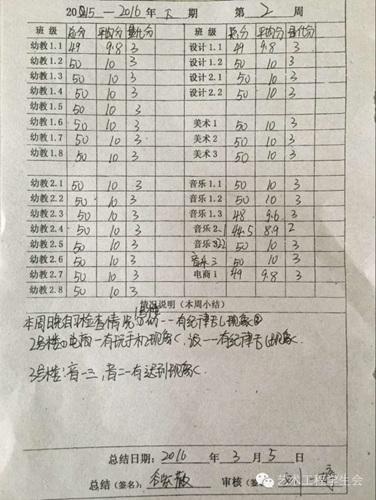 2015—2016年下期 第2周
班级 总分 平均分 量化分 班级 总分 平均分 量化分
幼教1.1 49 9.8 3 设计1.1 49 9.8 3
幼教1.2 50 10 3 设计1.2 50 10 3
幼教1.3 50 10 3 设计2.1 50 10 3
幼教1.4 50 10 3 设计2.2 50 10 3
幼教1.5 50 10 3
幼教1.6 50 10 3 美术1 50 10 3
幼教1.7 50 10 3 美术2 50 10 3
幼教1.8 50 10 3 美术3 50 10 3
幼教2.1 50 10 3 音乐1.1 50 10 3
幼教2.2 50 10 3 音乐1.2 50 10 3
幼教2.3 50 10 3 音乐1.3 48 9.6 3
幼教2.4 50 10 3 音乐2.1 44.5 8.9 2
幼教2.5 50 10 3 音乐 50 10 3
幼教2.6 50 10 3 音乐3 50 10 3
幼教2.7 50 10 3 电商1 49 9.8 3
幼教2.8 50 10 3
情况说明（本周小结）
本周晚自习检查情况 1号楼 幼一一有纪律乱现象
2号楼 有玩手机现象. 设一一有纪律乱现象.
3号楼:音一三,音二一有迟到现象.
总结日期: 2016 年 3 月 5 日
总结（签名）: 审核（签名）:
艺术工程学生会